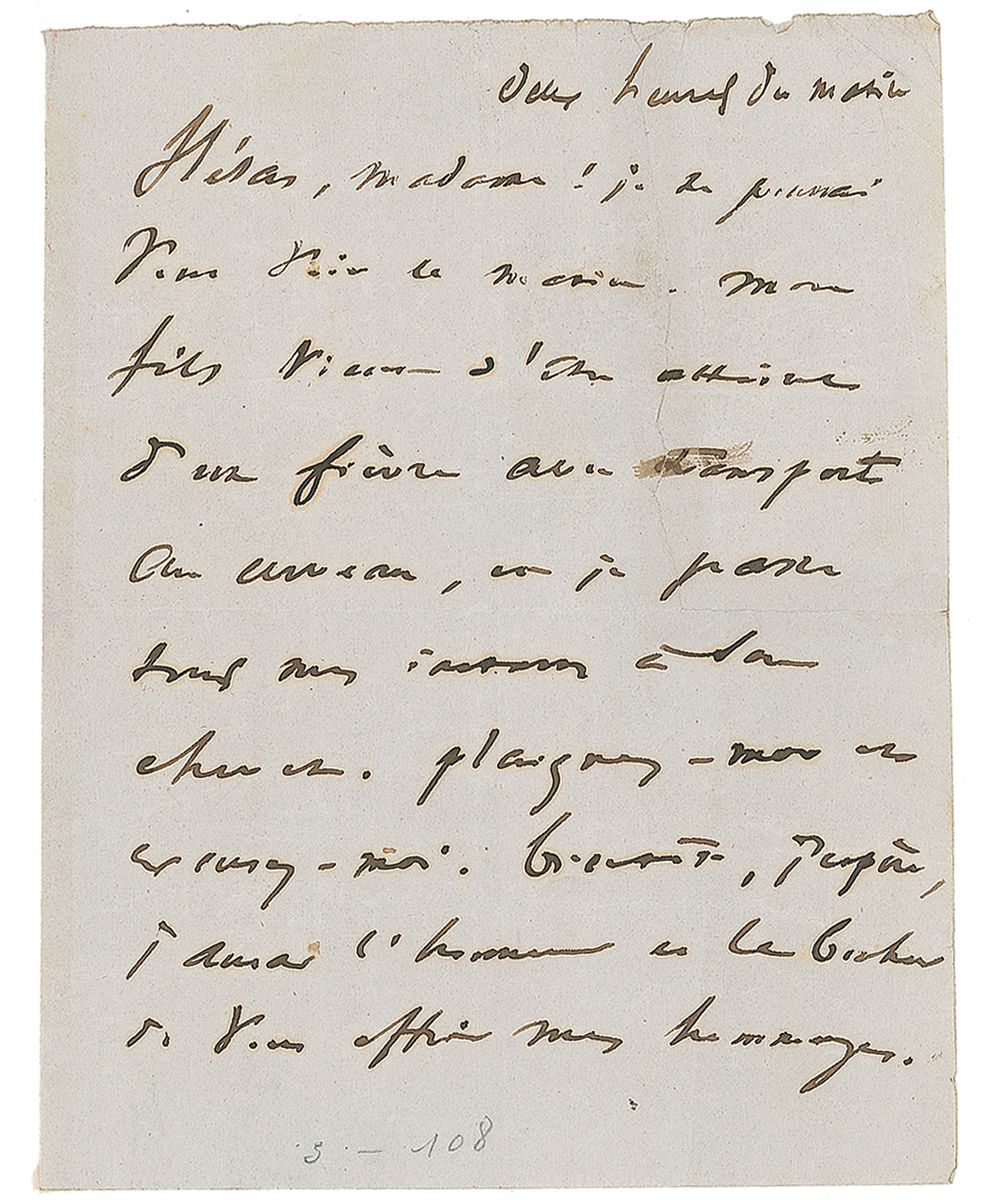 deux heures du matin
Hélas, madame ! je ne pourrai
vous voir ce matin. Mon
fils vient d'être atteint
d'une fièvre avec transport
au cerveau, et je passe
tous mes instants à son
chevet. plaignez-moi et
excusez-moi. bientôt, j'espère,
j'aurai l'honneur et le bonheur
de vous offrir mes hommages.
3 - 108